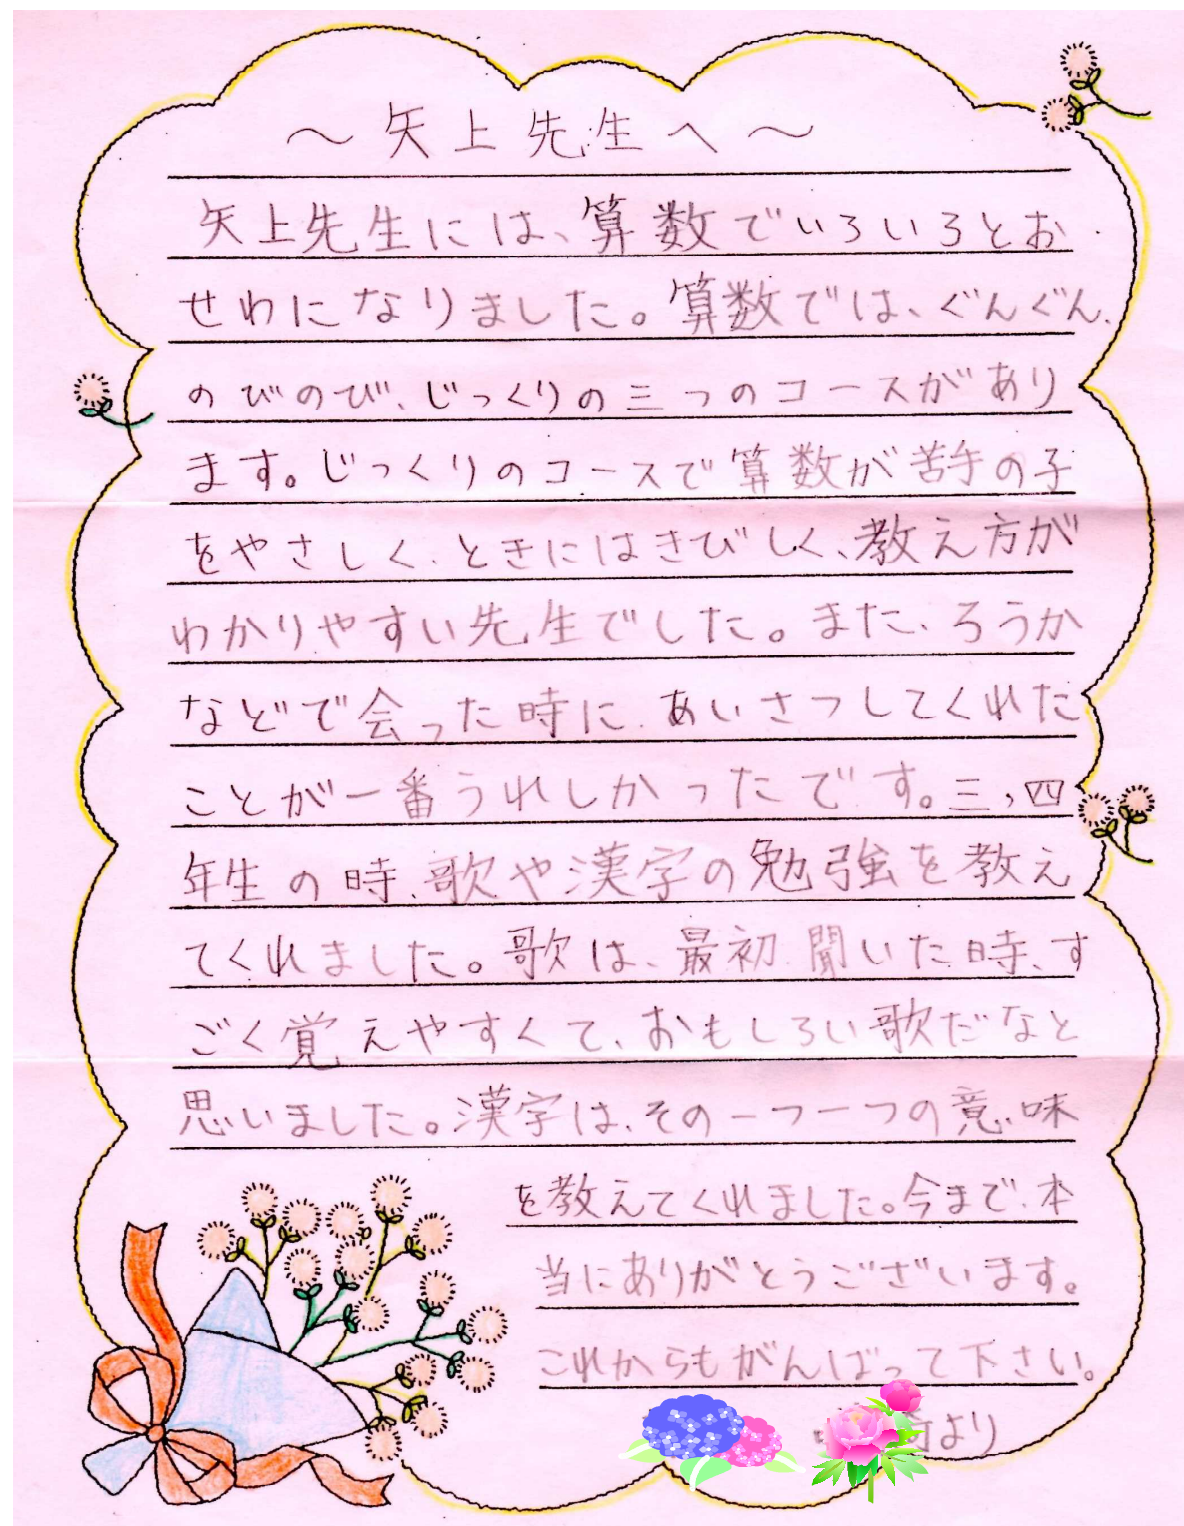 ～矢上先生へ～
矢上先生には、算数でいろいろとお
せわになりました。算数では、ぐんぐん、
のびのび、じっくりの三つのコースがあり
ます。じっくりのコースで算数が苦手の子
をやさしく、ときにはきびしく、教え方が
わかりやすい先生でした。また、ろうか
などで会った時に、あいさつしてくれた
ことが一番うれしかったです。三、四
年生の時、歌や漢字の勉強を教え
てくれました。歌は、最初、聞いた時、す
ごく覚えやすくて、おもしろい歌だなと
思いました。漢字は、その一つ一つの意味
を教えてくれました。今まで、本
当にありがとうございます。
これからもがんばって下さい。
より